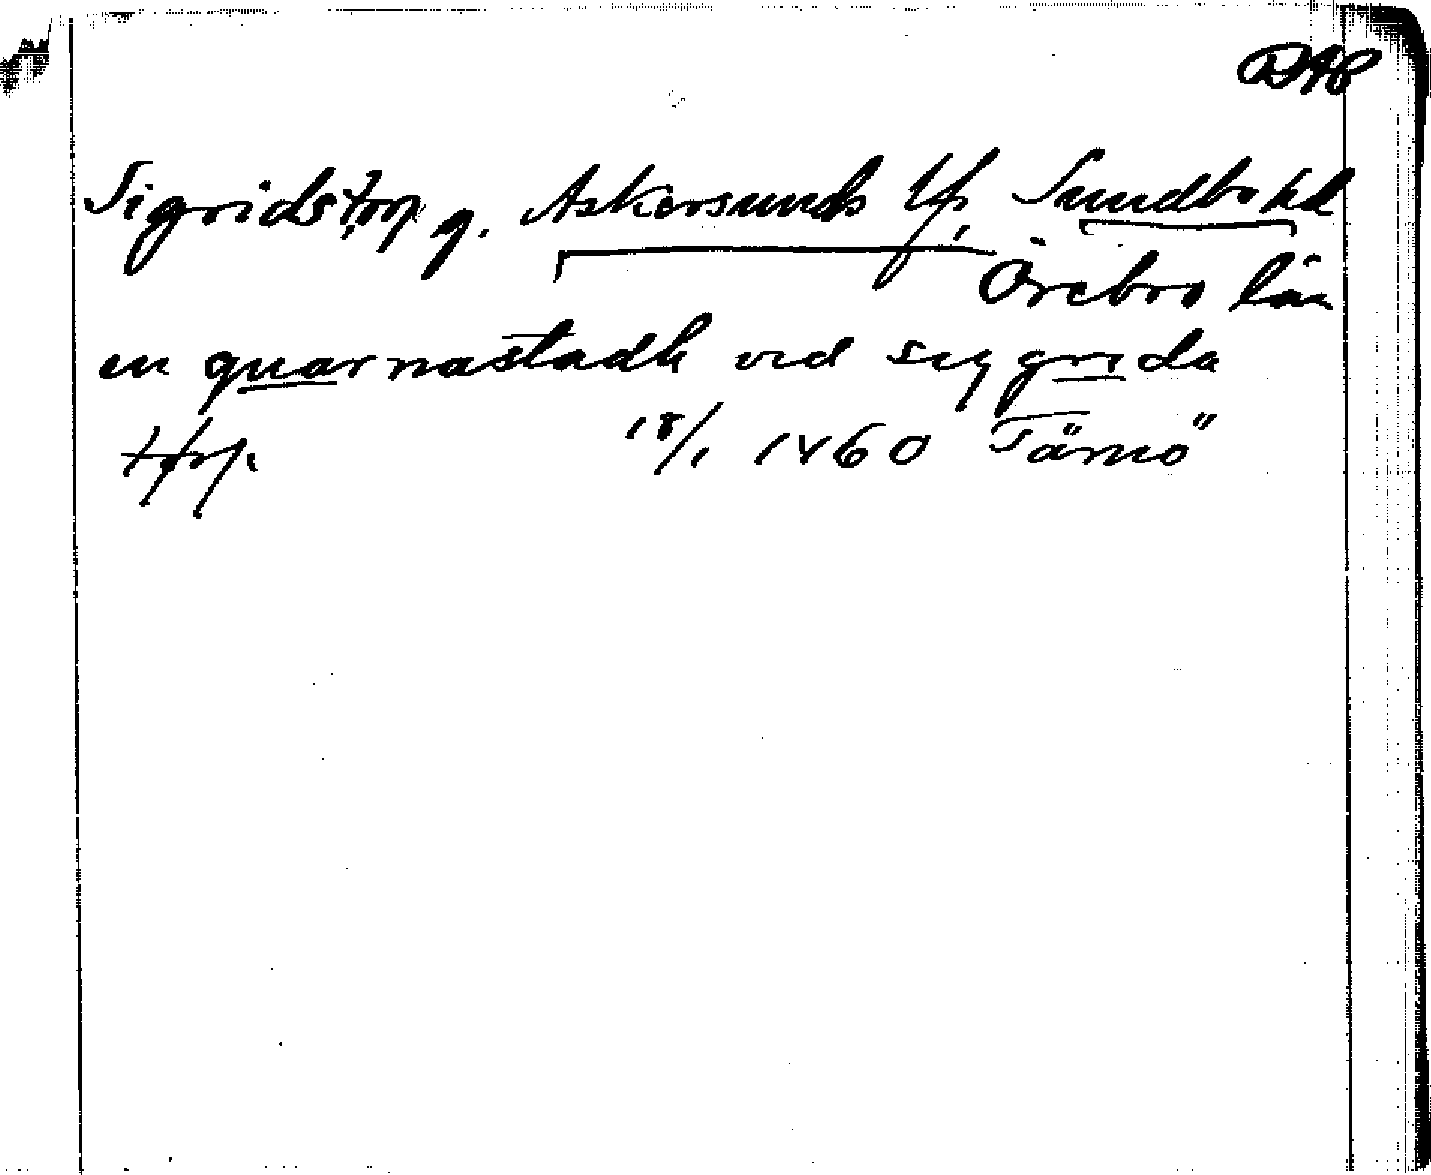 DAP
Sigridstorp g. Askersunds lfs, Sundbo hd
Örebro län
en quarnastadh vid syggrida
torp. 18/1 1460 Tärnö